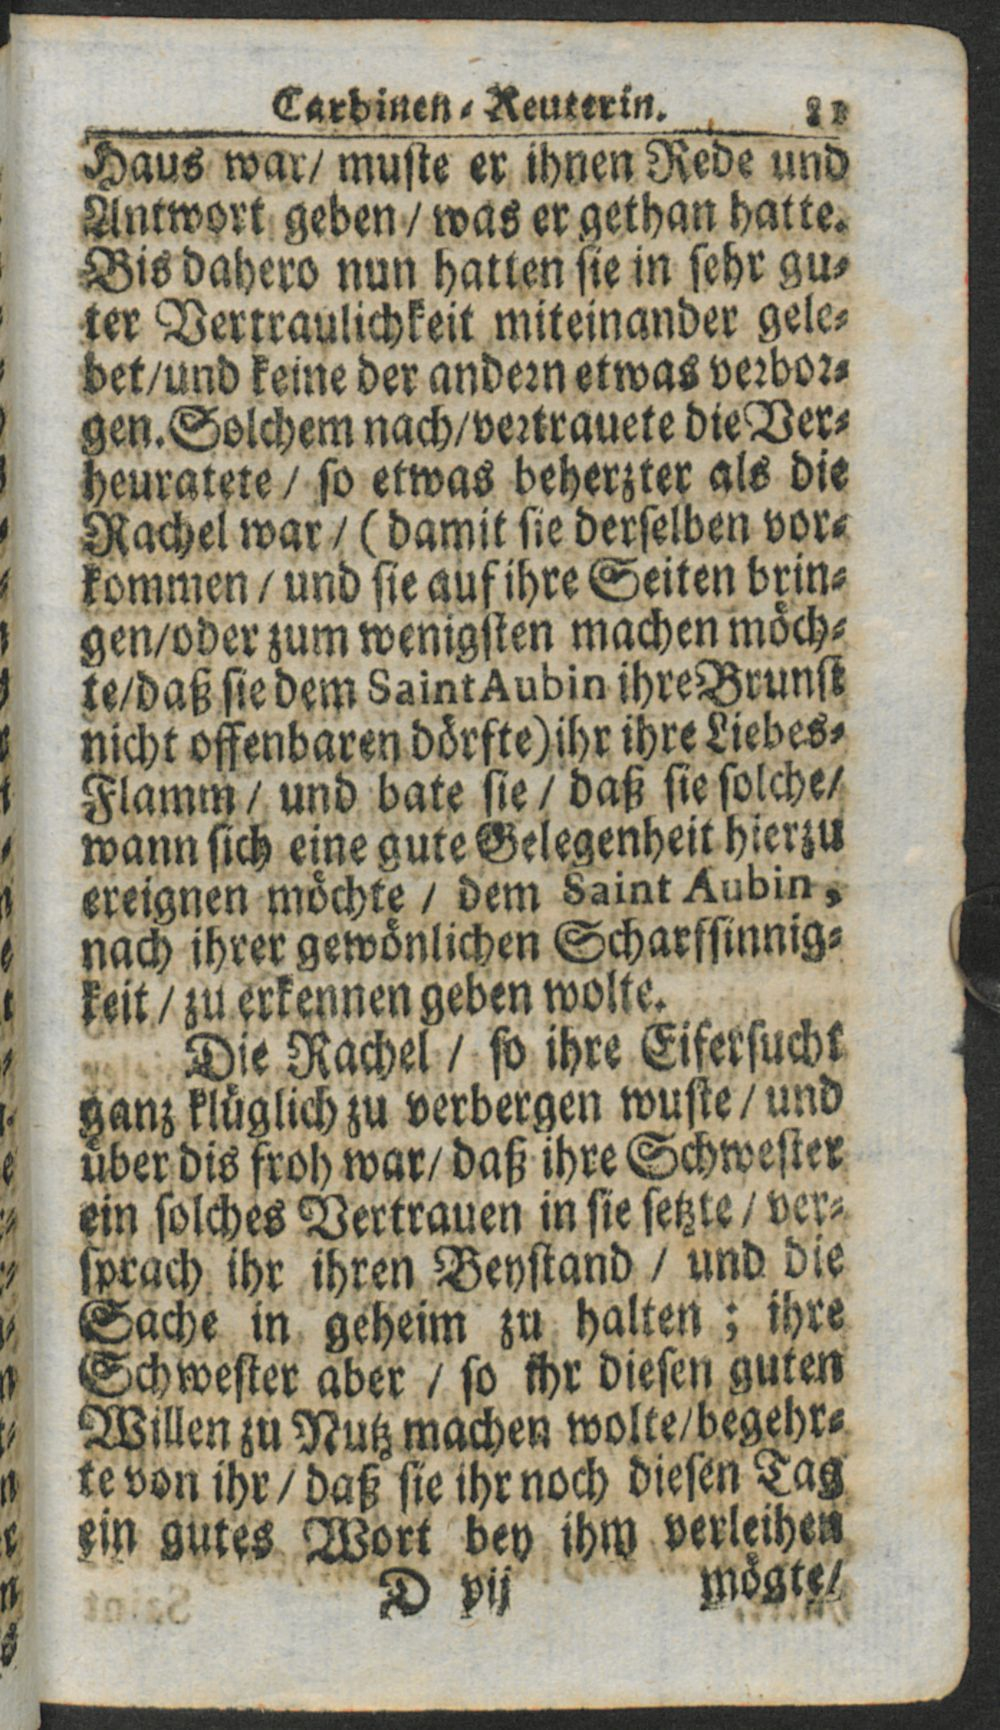 Carbinen-Reuterin. 81
Haus war/ muste er ihnen Rede und
Antwort geben / was er gethan hatte.
Bis dahero nun hatten sie in sehr gu-
ter Vertraulichkeit miteinander gele-
bet/und keine der andern etwas verbor-
gen. Solchem nach/vertrauete die Ver-
heuratete / so etwas beherzter als die
Rachel war / (damit sie derselben vor-
kommen / und sie auf ihre Seiten brin-
gen/oder zum wenigsten machen möch-
te/daß sie dem Saint Aubin ihre Brunst
nicht offenbaren dörfte) ihr ihre Liebes-
Flamm / und bate sie / daß sie solche/
wann sich eine gute Gelegenheit hierzu
ereignen möchte / dem Saint Aubin,
nach ihrer gewönlichen Scharfsinnig-
keit / zu erkennen geben wolte.
Die Rachel / so ihre Eifersucht
ganz klüglich zu verbergen wuste / und
über dis froh war/ daß ihre Schwester
ein solches Vertrauen in sie setzte / ver-
sprach ihr ihren Beystand / und die
Sache in geheim zu halten ; ihre
Schwester aber / so ihr diesen guten
Willen zu Nutz machen wolte/begehr-
te von ihr / daß sie ihr noch diesen Tag
ein gutes Wort bey ihm verleihen
D vij mögte/